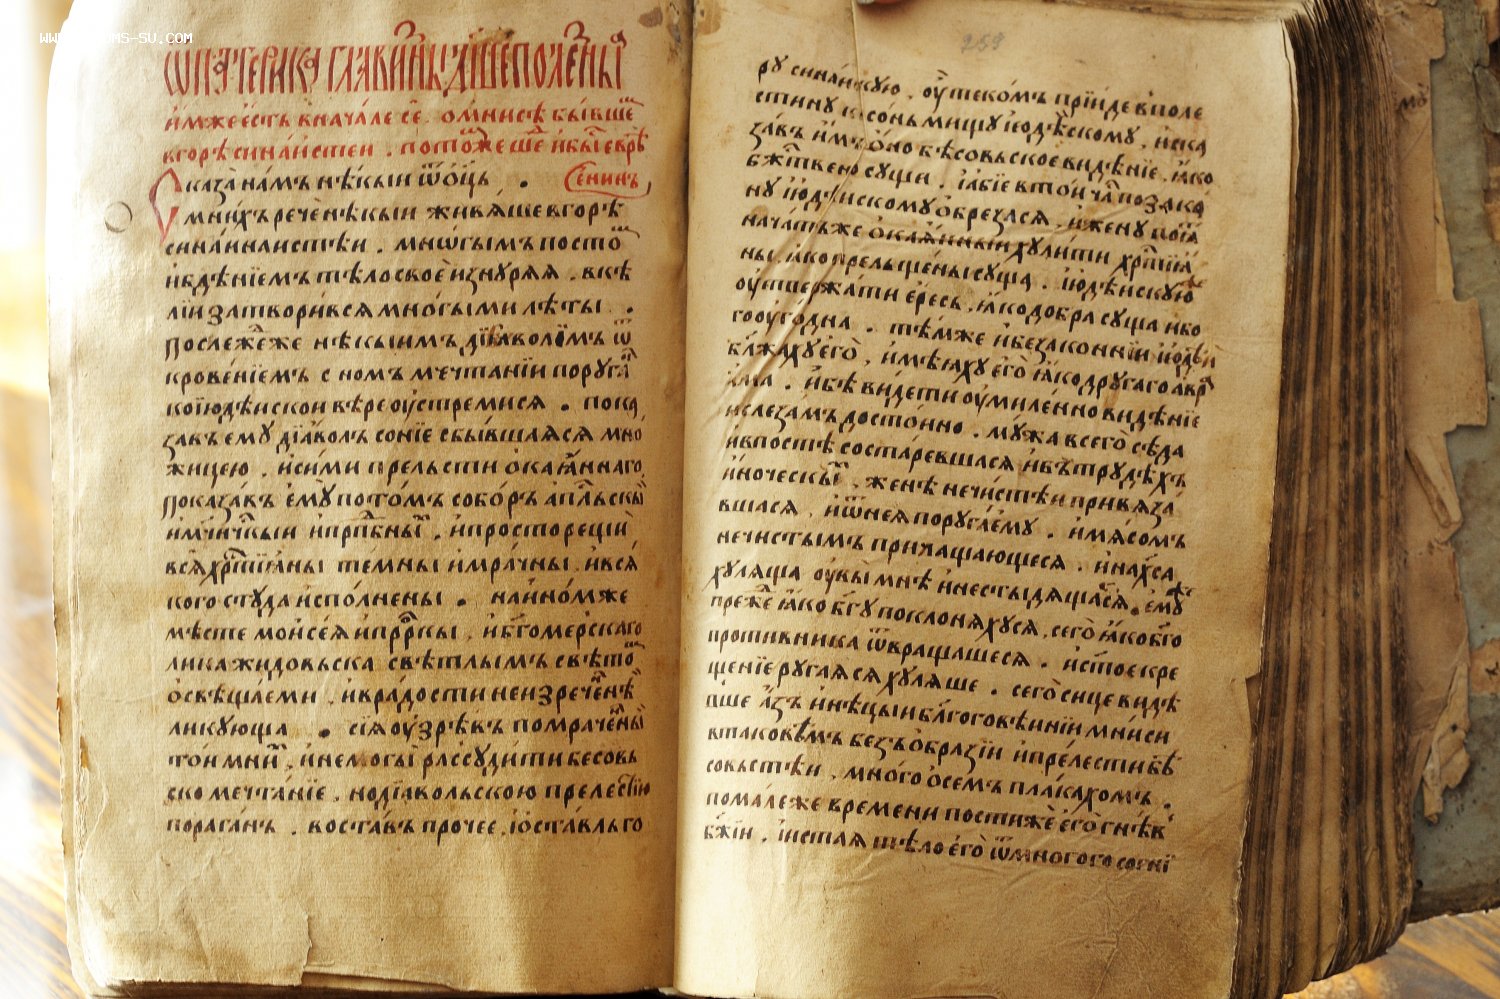 ѿ патерика главизны дш҃еполезны
имже есть вначале се. о мнисѣ бывше
вгорѣ синаистеи. потом же ѿше и бы евре
Сказа намъ нѣкыи ѿц҃ь.
мнихъ рече нѣкыи живяше вгорѣ
синаинаистѣи. мнѡгымъ посто
и бдѣнїемъ тѣло своѐ изнуряя. вкѣ
лїи затворився многыми лѣты.
послежеже нѣкыимъ дїаволомъ ѿ
кровенїемъ с ном мъ мечтанїи поруга
ко июдѣискои вѣре оустремися. пока
завъ ему дїаволъ сонїе сбывшаяся мно
жицею. и сими прельсти окаяннаго
показавъ ему потомъ соборъ ап҃льскы
и мчн҃чкыи и прпд҃бны. и просто рещи
вся хр҃тїяны темны и мрачны. и вся
кого студа исполнены. на ином же
мѣсте моисея и прр҃кы. и бг҃омерскаго
лика жидовьска свѣтлымъ свѣто
освѣщаеми. и врадости неизреченнѣ
ликующа. сїя оузрѣвъ помрачены
тои мни. и не могы разсудити бесовь
ско мечтанїе. но дїавольскою прелестїю
пораганъ. воставъ прочее. и оставль го
259
ру синаискую. оутекомъ прїиде в поле
стину к сонмищу июдѣскому, и ска
завъ имъ оно бѣсовьское видѣнїе. яко
бж҃твено сущи. и абїе в тои ча по зако
ну июдѣискому обрезася. и жену поя
начатъ же окаянныи хулити хр҃тїя
ны. яко прельщены суща. июдѣискую
оутвержати ересь. яко добра суща и бо
гооугодна. тѣмже и безаконнїи июдеи
блажаху его. имѣяху его яко другаго авра
ама. и бѣ видети оумиленно видѣнїе
и слезамъ достойно. мужа всего сѣда
и впостѣ состаревшася и въ трудѣхъ
иноческы. женѣ нечистѣи привяза
вшася. и ѿ нея поругаему. и мясомъ
нечистымъ причащающеся. и на х҃са
хуляща оувы мнѣ и не стыдящася. ему
преже яко бг҃у поклоняхуся, сего яко бг҃о
противника ѿвращашеся. и ст҃ое кре
щенїе ругаяся хуляше. сего сице видѣ
вше азъ и нѣцыи блг҃оговѣинїи мниси
в таковѣмъ безъобразїи и прелести бѣ
совьстѣи. много о семъ плакахомъ.
по мале же времени постиже его гнѣв
бж҃їи. и истая тѣло его ѿ многого согнї